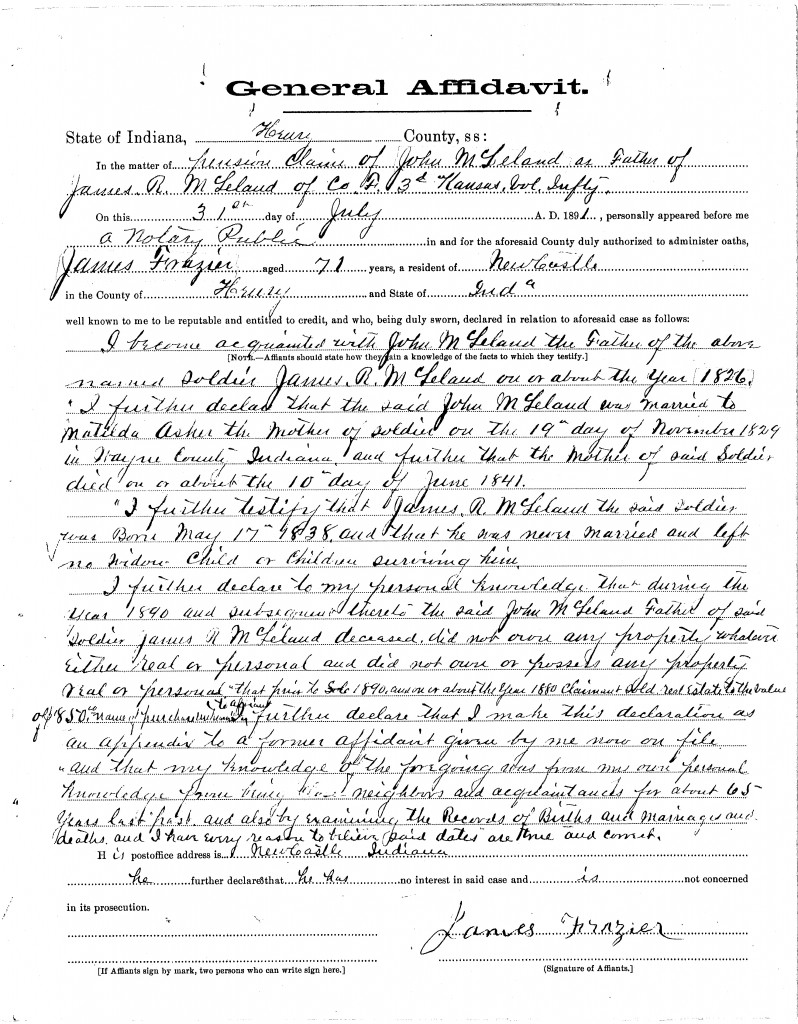 General Affidavit.
State of Indiana, Henry County, ss:
In the matter of pension Claim of John McLeland as Father of
James. R. McLeland of Co F. 3d Kansas, Vol. Infty.
On this 31st day of July A. D. 1891, personally appeared before me
a Notary Public in and for the aforesaid County duly authorized to administer oaths,
James Frazier aged 71 years, a resident of New Castle
in the County of Henry and State of Inda
well known to me to be reputable and entitled to credit, and who, being duly sworn, declared in relation to aforesaid case as follows:
I become acquainted with John McLeland the Father of the above
[Note.—Affiants should state how they gain a knowledge of the facts to which they testify.]
named Soldier James. R. McLeland on or about the Year 1826.
"I further declar that the said John McLeland was Married to
Matilda Asher the Mother of soldier on the 19" day of November 1829
in Wayne County Indiana and further that the Mother of said Soldier
died on or about the 10" day of June 1841.
"I further testify that James. R. McLeland the said soldier
was Born May 17" 1838. and that he was never Married and left
no Widow Child or Children surviving him.
I further declare to my personal knowledge that during the
Year 1890 and subsequent thereto the said John McLeland Father of said
Soldier James R McLeland deceased. did not own any property whatever
Either real or personal and did not own or possess any property
real or personal "that prior to 1890, and on or about the Year 1880 Claimant sold real Estate to the value
of $850. name of purchaser further declare that I make this declaration as
an appendix to a former affidavit given by me now on file
"and that my knowledge of the foregoing was from my own personal
knowledge from being neighbors and acquaintances for about 65
Years last past. and also by examining the Records of Births and Marriages and
deaths. and I have every reason to believe said dates are true and correct.
His postoffice address is New Castle Indiana
he further declares that he has no interest in said case and is not concerned
in its prosecution.
James Frazier
[If Affiants sign by mark, two persons who can write sign here.]
(Signature of Affiants.]